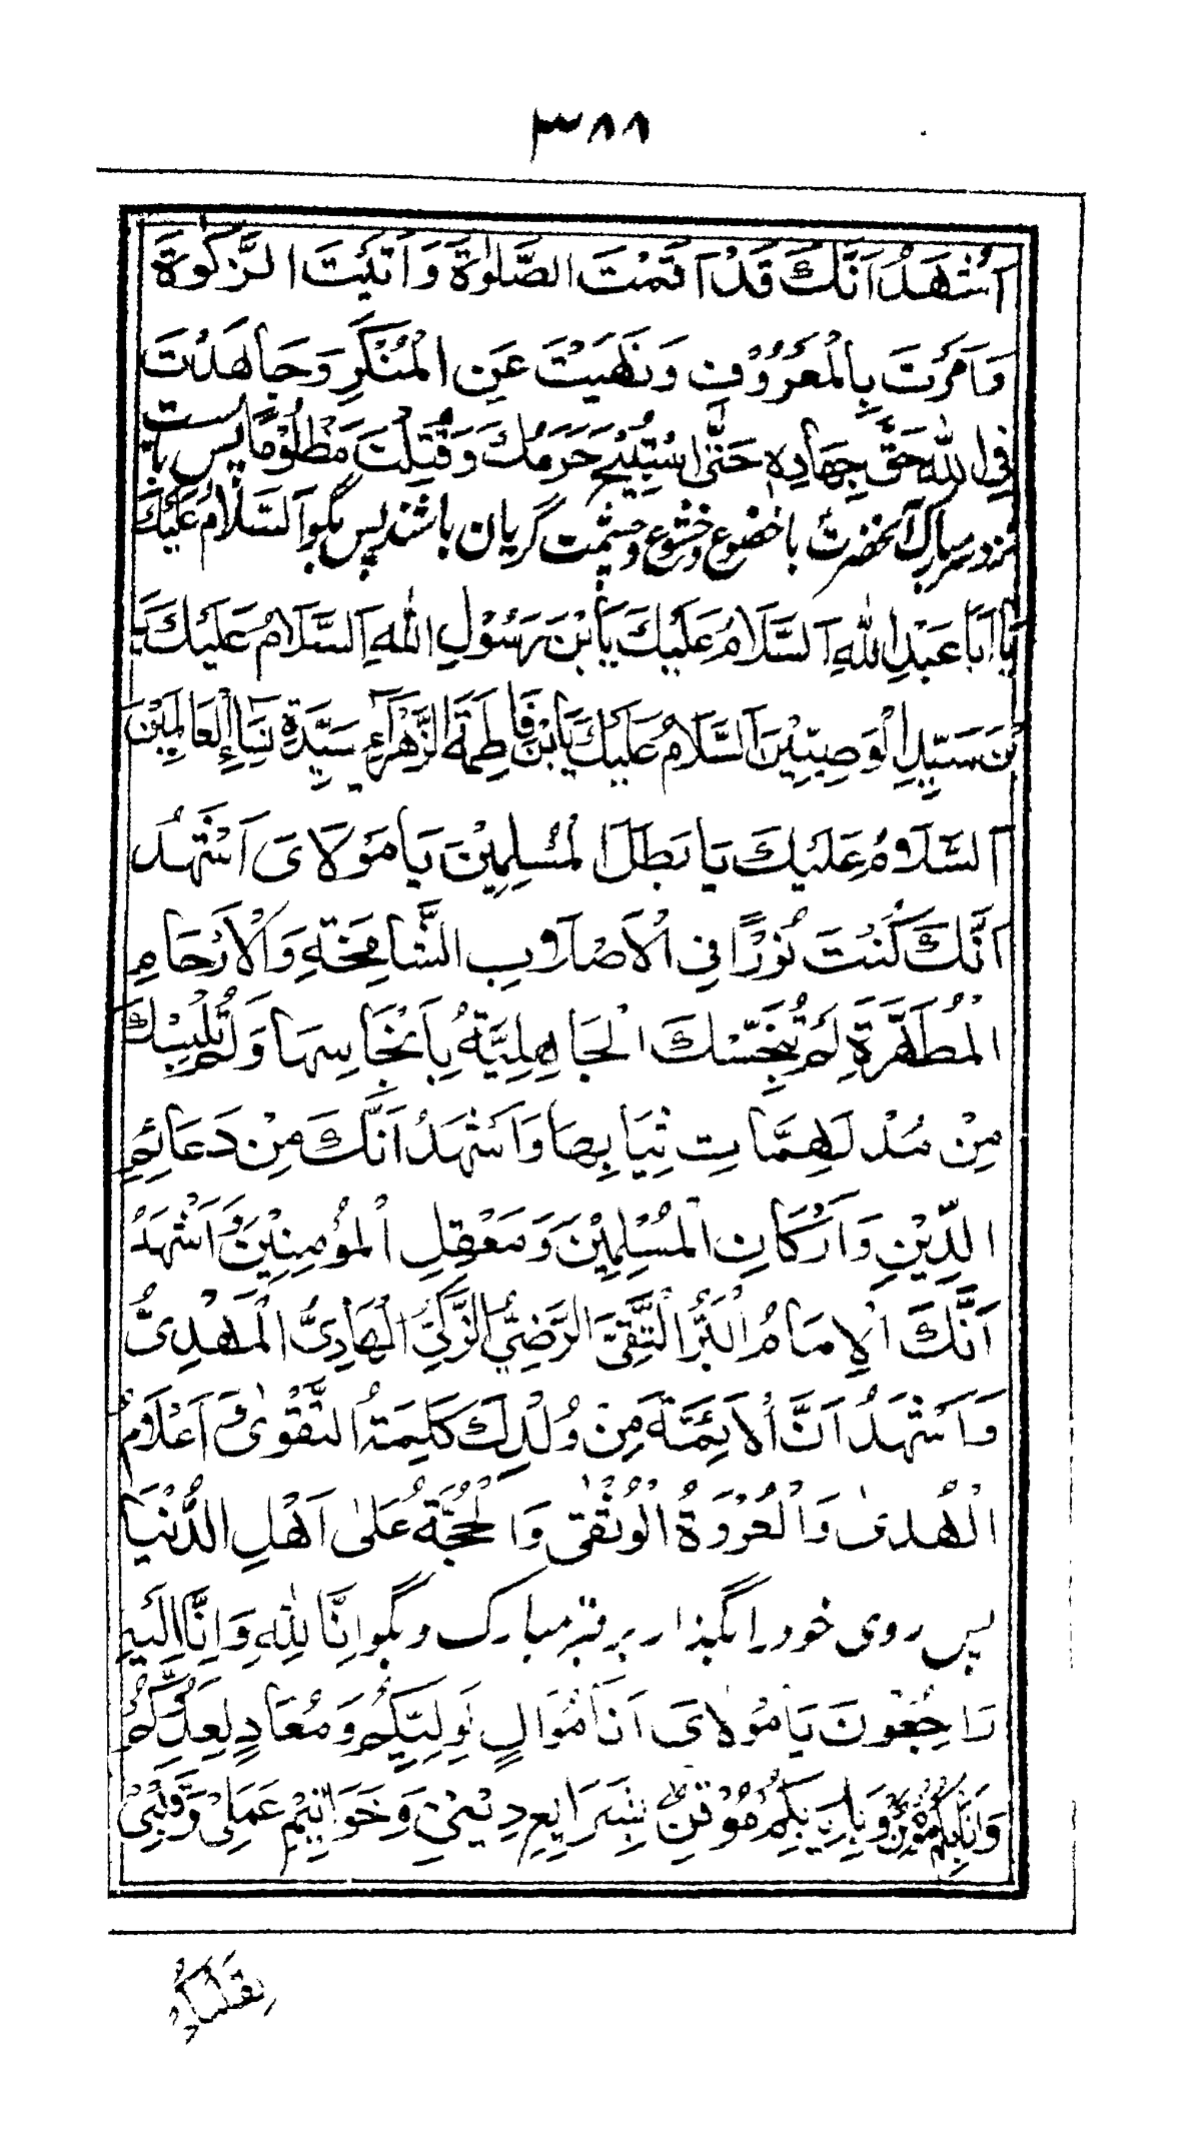 ٣٨٨
اَشْهَدُ اَنَّكَ قَدْ اَقَمْتَ الصَّلٰوةَ وَ اٰتَيْتَ الزَّكٰوةَ
وَ اَمَرْتَ بِالْمَعْرُوْفِ وَ نَهَيْتَ عَنِ الْمُنْكَرِ وَ جَاهَدْتَ
فِي اللّٰهِ حَقَّ جِهَادِهٖ حَتَّى اسْتُبِيْحَ حَرَمُكَ وَ قُتِلْتَ مَظْلُوْمًا پس بایست
نزد سر مبارك آنحضرت با خضوع و خشوع و چشمت گریان باشد پس بگو اَلسَّلَامُ عَلَيْكَ
يَا اَبَا عَبْدِ اللّٰهِ اَلسَّلَامُ عَلَيْكَ يَابْنَ رَسُوْلِ اللّٰهِ اَلسَّلَامُ عَلَيْكَ يَا
بْنَ سَيِّدِ الْوَصِيِّيْنَ اَلسَّلَامُ عَلَيْكَ يَابْنَ فَاطِمَةَ الزَّهْرَآءِ سَيِّدَةِ نِسَآءِ الْعَالَمِيْنَ
اَلسَّلَامُ عَلَيْكَ يَا بَطَلَ الْمُسْلِمِيْنَ يَا مَوْلَايَ اَشْهَدُ
اَنَّكَ كُنْتَ نُوْرًا فِي الْاَصْلَابِ الشَّامِخَةِ وَ الْاَرْحَامِ
الْمُطَهَّرَةِ لَمْ تُنَجِّسْكَ الْجَاهِلِيَّةُ بِاَنْجَاسِهَا وَ لَمْ تُلْبِسْكَ
مِنْ مُدْلَهِمَّاتِ ثِيَابِهَا وَ اَشْهَدُ اَنَّكَ مِنْ دَعَائِمِ
الدِّيْنِ وَ اَرْكَانِ الْمُسْلِمِيْنَ وَ مَعْقِلِ الْمُؤْمِنِيْنَ وَ اَشْهَدُ
اَنَّكَ الْاِمَامُ الْبَرُّ التَّقِيُّ الرَّضِيُّ الزَّكِيُّ الْهَادِيُّ الْمَهْدِيُّ
وَ اَشْهَدُ اَنَّ الْاَئِمَّةَ مِنْ وُلْدِكَ كَلِمَةُ التَّقْوٰى وَ اَعْلَامُ
الْهُدٰى وَ الْعُرْوَةُ الْوُثْقٰى وَ الْحُجَّةُ عَلٰى اَهْلِ الدُّنْيَا
پس روی خود را بگذار بر قبر مبارک و بگو اِنَّا لِلّٰهِ وَ اِنَّا اِلَيْهِ
رَاجِعُوْنَ يَا مَوْلَايَ اَنَا مُوَالٍ لِوَلِيِّكُمْ وَ مُعَادٍ لِعَدُوِّكُمْ
وَ اَنَا بِكُمْ مُؤْمِنٌ وَ بِاِيَابِكُمْ مُوْقِنٌ بِشَرَايِعِ دِيْنِيْ وَ خَوَاتِيْمِ عَمَلِيْ وَ قَلْبِيْ
لِقَلْبِكُمْ